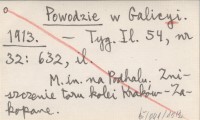 Powodzie w Galicyi.
1913. — Tyg. Il. 54, nr
32: 632, il.
M. in. na Podhalu. Zni-
szczenie toru kolei Kraków-Za-
kopane.